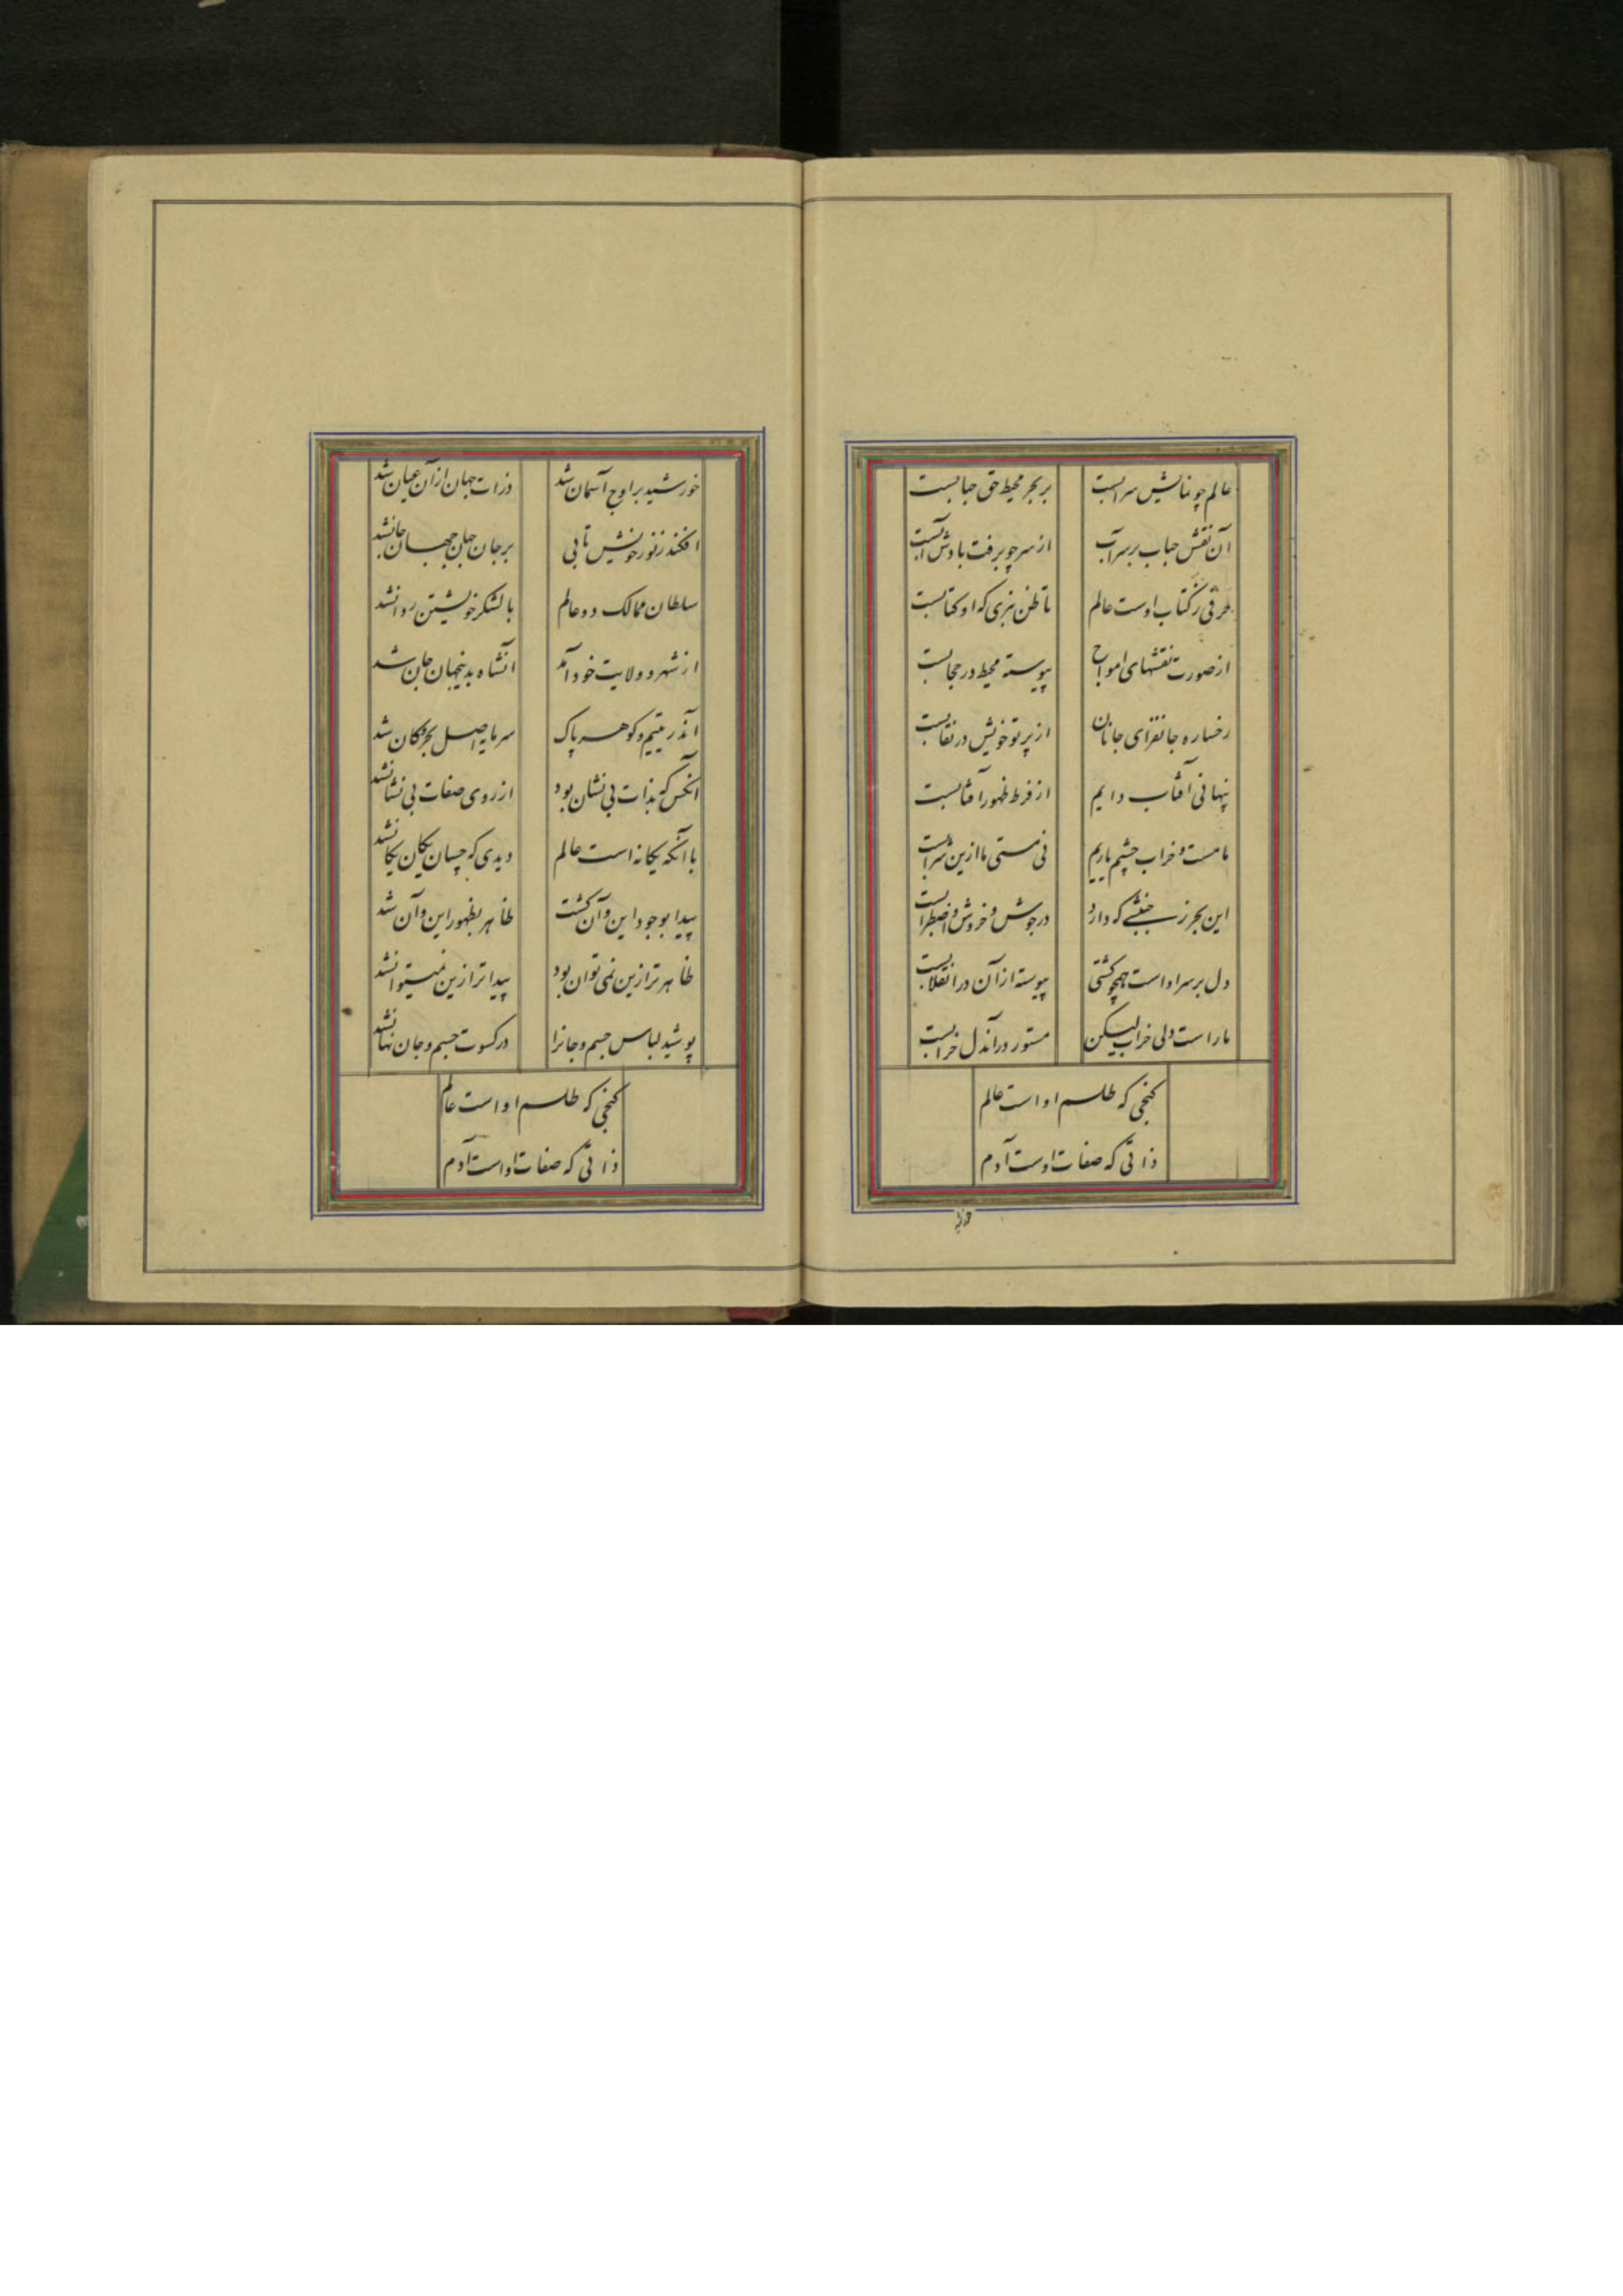 عالم چو نمایش سرابست
بر بحر محیط حق حبابست
آن نقش حباب بر سر آب
از سر چو برفت بادش آبست
حرفی ز کتاب اوست عالم
تا ظن نبری که او کتابست
از صورت نقشهای امواج
پیوسته محیط در حجابست
رخساره جانفزای جانان
از پرتو خویش در نقابست
پنهانی آفتاب دایم
از فرط ظهور آفتابست
ما مست و خراب چشم یاریم
نی مستی ما ازین شرابست
این بحر ز جنبشی که دارد
در جوش و خروش و اضطرابست
دل بر سر او است همچو کشتی
پیوسته از آن در انقلابست
ما راست دلی خراب لیکن
مستور در آندل خرابست
کنجی که طلسم او است عالم
ذاتی که صفات اوست آدم
خورشید بر اوج آسمان شد
ذرات جهان از آن عیان شد
افکند ز نور خویش تابی
بر جان جهان جهان جانشد
سلطان ممالک دو عالم
با لشکر خویشتن روانشد
از شهر و ولایت خود آمد
آنشاه بدینجهان جان شد
آندر یتیم و کوهر پاک
سرمایه اصل بحر و کان شد
آنکس که بذات بی نشان بود
از روی صفات بی نشانشد
با آنکه یکانه است عالم
دیدی که چسان یکان یکانشد
پیدا بوجود این و آن کشت
ظاهر بظهور این و آن شد
ظاهر تر ازین نمی توان بود
پیدا تر ازین نمیتوانشد
پوشید لباس جسم و جانرا
در کسوت جسم و جان نهانشد
کنجی که طلسم او است عالم
ذاتی که صفات او است آدم